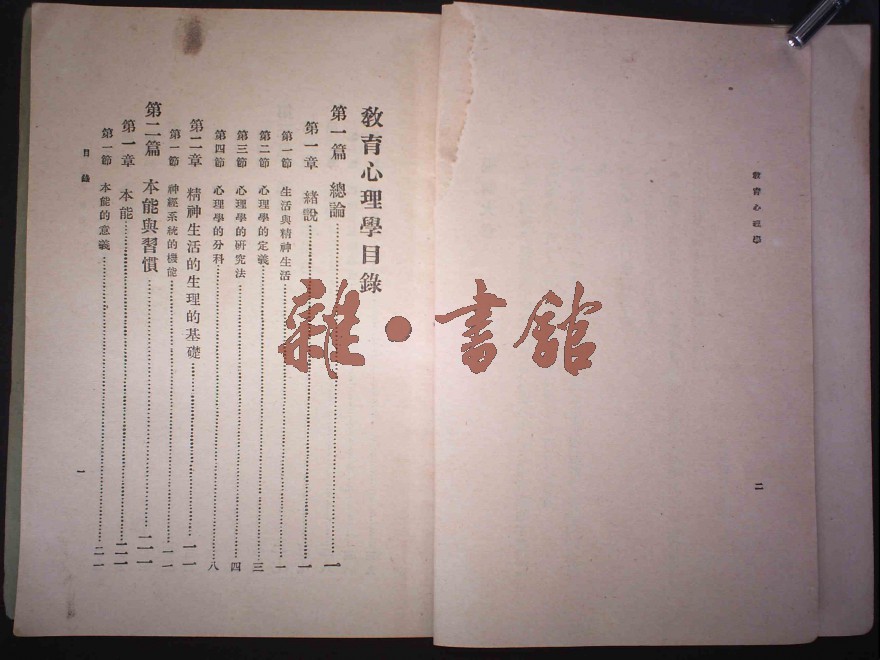 教育心理學
二
教育心理學目錄
第一篇 總論……一
第一章 緒說……一
第一節 生活與精神生活……一
第二節 心理學的定義……三
第三節 心理學的研究法……四
第四節 心理學的分科……八
第二章 精神生活的生理的基礎……一一
第一節 神經系統的機能……一一
第二篇 本能與習慣……二一
第一章 本能……二一
第一節 本能的意義……二一
目錄
一
雜·書館